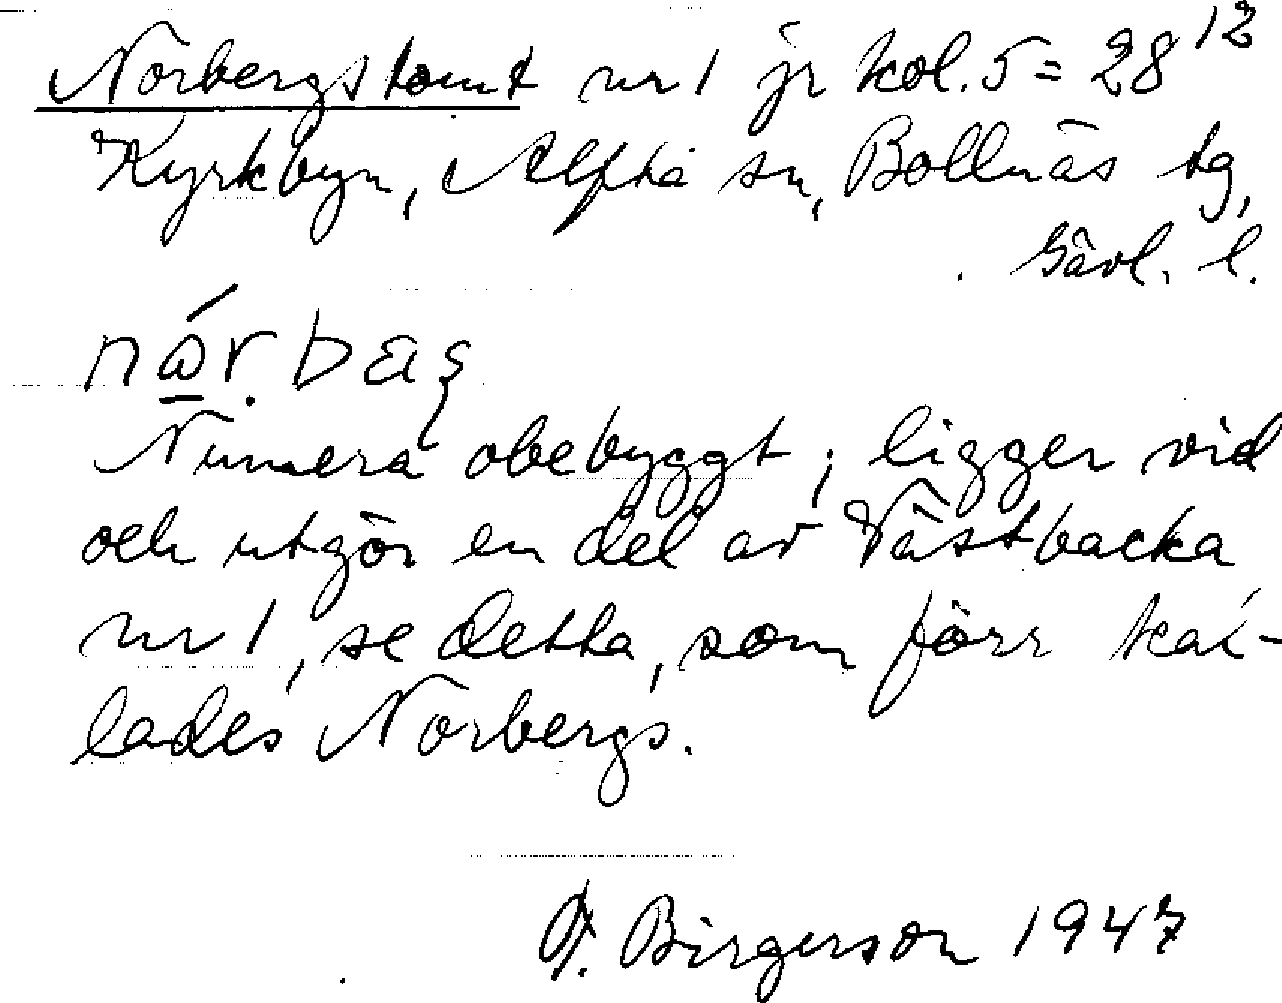 Norbergstomt nr 1 jr kol. 5 = 28¹²
Kyrkbyn, Alfta sn, Bollnäs tg,
Gävl. l.
Numera obebyggt; ligger vid
och utgör en del av Västbacka
nr 1, se detta, som förr kal-
lades Norbergs.
Birgerson 1947